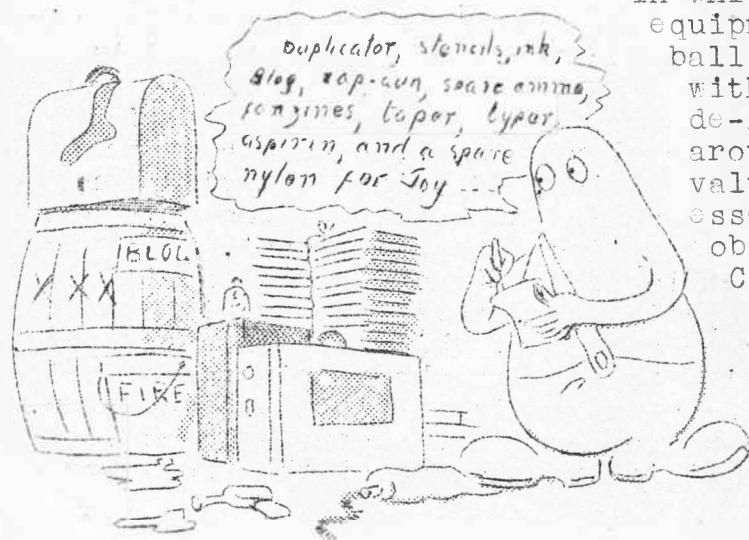 Duplicator, stencils, ink,
Blog, zap-gun, spare ammo,
fanzines, taper, typer,
aspirin, and a spare
nylon for Joy ...
equipm
ball
with
de-
arou
valu
ess
ob
C
BLOG
XXX
FIRE